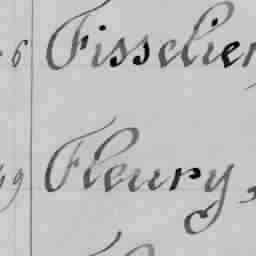 6 Fisselier
9 Fleury,